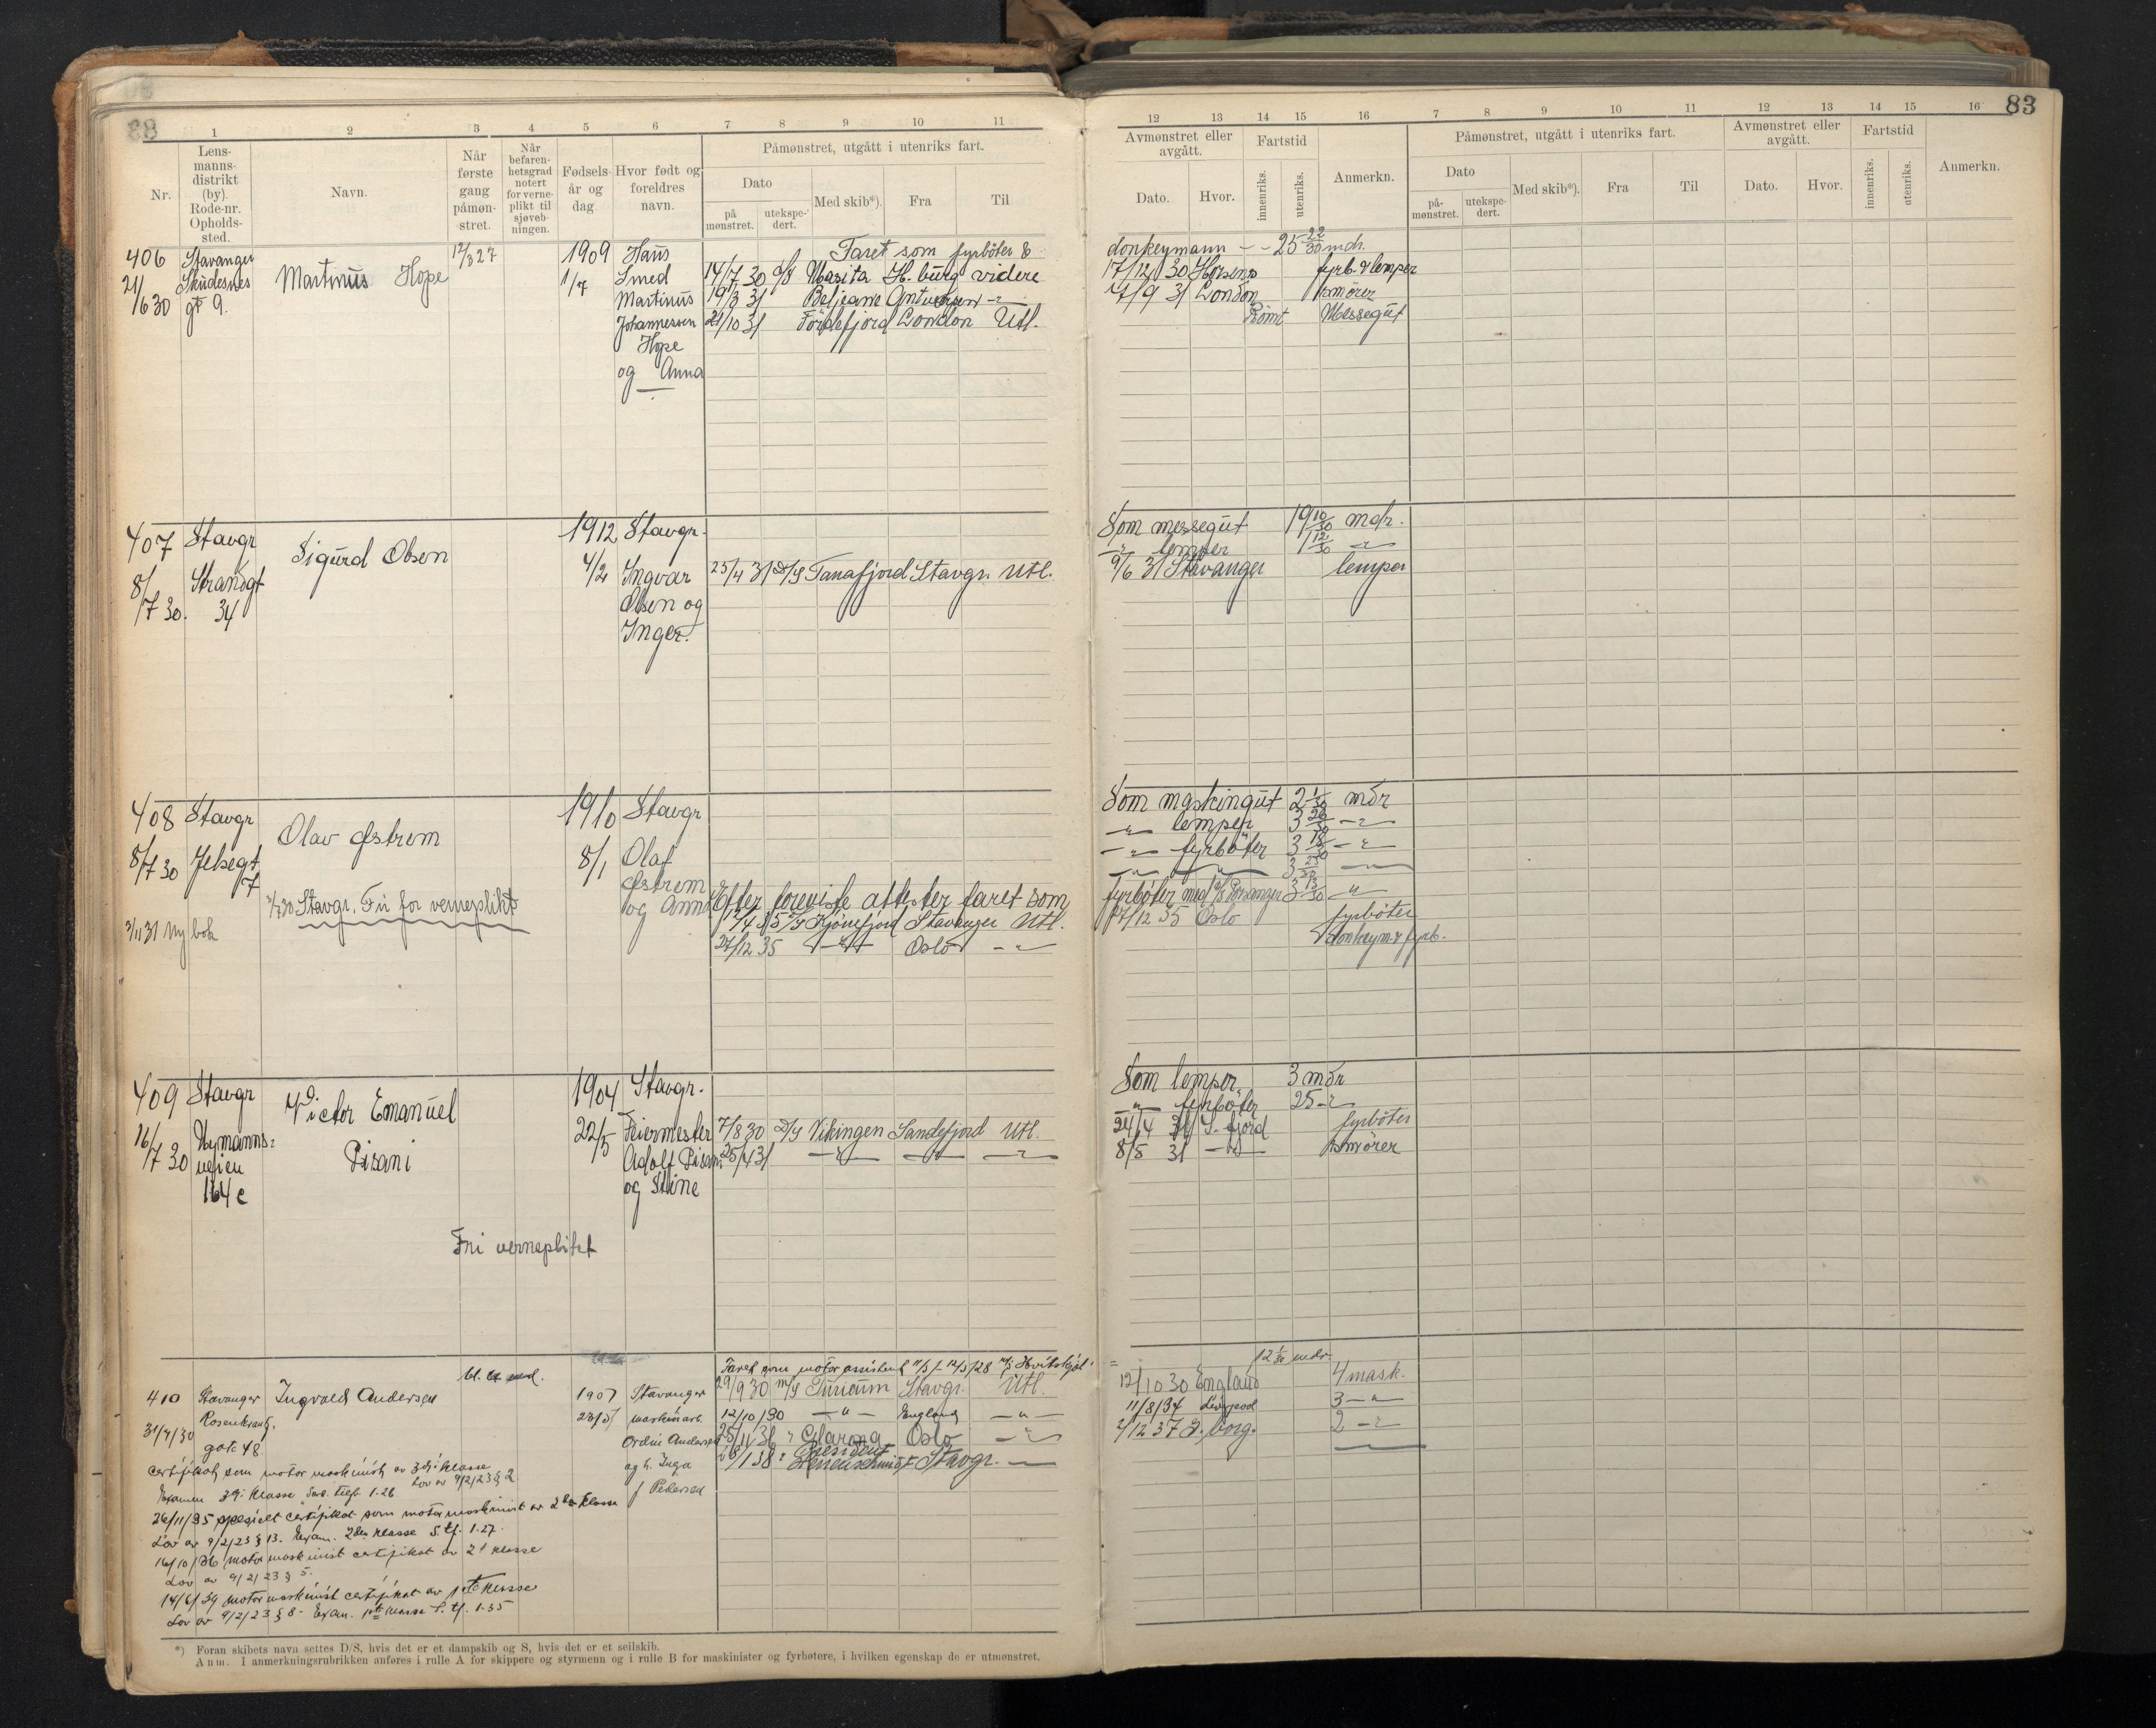 83
1 2 3 4 5 6 7 8 9 10 11
Nr.
Lens-
manns-
distrikt
(by).
Rode-nr.
Opholds-
sted.
Navn.
Når
første
gang
påmøn-
stret.
Når
befaren-
hetsgrad
notert
for verne-
plikt til
sjøveb-
ningen.
Fødsels-
år og
dag
Hvor født og
foreldres
navn.
Påmønstret, utgått i utenriks fart.
Dato
på
mønstret.
utekspe-
dert.
Med skib*).
Fra
Til
12 13 14 15 16 7 8 9 10 11 12 13 14 15 16 83
Avmønstret eller
avgått.
Dato.
Hvor.
Fartstid
innenriks.
utenriks.
Anmerkn.
Påmønstret, utgått i utenriks fart.
Dato
på-
mønstret.
utekspe-
dert.
Med skib*).
Fra
Til
Avmønstret eller
avgått.
Dato.
Hvor.
Fartstid
innenriks.
utenriks.
Anmerkn.
406 Stavanger 17/3 27 1909 Haus Faret som fyrböter & donkeymann - - 25 22/30 mdr.
21/6 30 Skudesnes Martinus Hope 1/7 Smed 14/7 30 Masita H.burg videre 17/12 30 Horsens fyrb. & lemper
gt 9. Martinus 19/3 31 Beljeanne Antwerpen -"- 7/9 31 London smörer
Johannessen 21/10 31 Fördefjord London Utl. Römt Messegut
Hope
og Anna
407 Stavgr 1912 Stavgr. Som messegut 19 10/30 mdr.
Sigurd Olsen -"- lemper 1 12/30 -"-
8/7 30. Strandgt 4/2 Ingvar 25/4 31 D/S Tanafjord Stavgr. Utl. 9/6 31 Stavanger lemper
34 Olsen og
Inger.
408 Stavgr 1910 Stavgr Som maskingut 2 1/30 mdr
Olav Østrem -"- lemper 3 26/30 -"-
8/7 30 Jelsegt 8/1 Olaf -"- fyrböter 3 18/30 -"-
7 Østrem -"- -"- 3 25/30 -"-
Stavgr. Fri for verneplikt og Anna Efter foreviste attester faret som fyrböter med D/S Porsanger 3 13/30 "
3/11 31 Ny bok 17/4 35 D/S Kjönefjord Stavanger Utl. 27/12 35 Oslo fyrböter
27/12 35 -"- Oslo -"- Donkeym. & fyrb.
409 Stavgr 1904 Stavgr. Som lemper 3 mdr
Victor Emanuel -"- fyrböter 25 -"-
16/7 30 Nymanns- 22/5 Feiermester 7/8 30 D/S Vikingen Sandefjord Utl. 24/4 31 S. fjord fyrböter
veien Pisani Adolf Pisani 25/4 31 -"- -"- -"- 8/5 31 -"- smörer
164 c og Stine
Fri verneplikt
Faret som motorassistent 11/5 - 12/5/28 M/S Hvitskjel = 12 1/30 mdr
410 Stavanger Ingvald Andersen 1907 Stavanger 29/9 30 M/S Turicum Stavgr. Utl. 12/10 30 England 4 mask.
Rosenkrantz 23/5 maskinarb. 12/10/30 -"- England -"- 11/8/34 Liverpool 3 -"-
31/7/30 gate 48 Ordin Andersen 25/11 36 " Glarona Oslo -"- 2/12 37 G. borg. 2 -"-
og h. Inga 28/1 38 " President Stavgr. -"-
f Pedersen
certifikat som motormaskinist av 3dj klasse
Lov av 9/2/23 § 2
Examen 3dj. klasse Sav. tlfb. 1.26
26/11/35 spesielt certifikat som motormaskinist av 2den klasse
Lov av 9/2/23 § 13. Exam. 2den klasse S. tf. 1.27.
16/10/36 motormaskinist certifikat av 2d klasse
Lov av 9/2/23 § 5.
14/6/39 motormaskinist certifikat av 1ste klasse
Lov av 9/2/23 § 8 - Exam. 1ste klasse S. tf. 1.35
*) Foran skibets navn settes D/S, hvis det er et dampskib og S, hvis det er et seilskib.
Anm. I anmerkningsrubrikken anføres i rulle A for skippere og styrmenn og i rulle B for maskinister og fyrbøtere, i hvilken egenskap de er utmønstret.